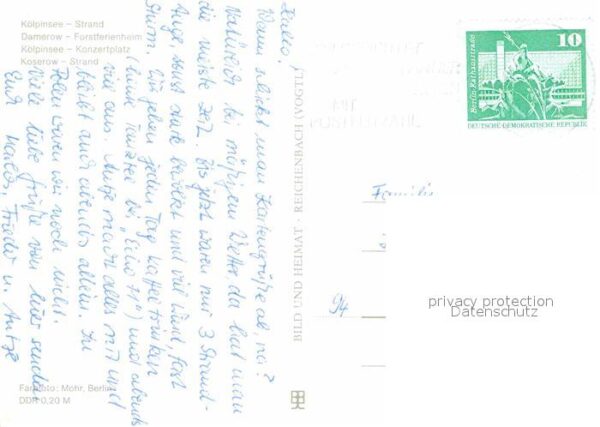 Kölpinsee – Strand
Damerow – Forstferienheim
Kölpinsee – Konzertplatz
Koserow – Strand
Hallo!
Wann schickt man Kartengrüße ab, na?
Natürlich bei mäßigem Wetter, da hat man
die meiste Zeit. Bis jetzt waren nur 3 Strand-
tage, sonst stark bewölkt und viel Wind, fast
Sturm. Wir gehen jeden Tag Kaffeetrinken
und abends
viel aus. Antje macht alles mit und
bleibt auch abends allein. In
Polen waren wir noch nicht.
Viele liebe Grüße von hier senden
Euch Marlos, Frieder u. Antje
Farbfoto: Mohr, Berlin
DDR 0,20 M
BILD UND HEIMAT · REICHENBACH (VOGTL)
MIT
POSTLEITZAHL
10
Berlin, Rathausstraße
DEUTSCHE DEMOKRATISCHE REPUBLIK
Familie
94
privacy protection
Datenschutz